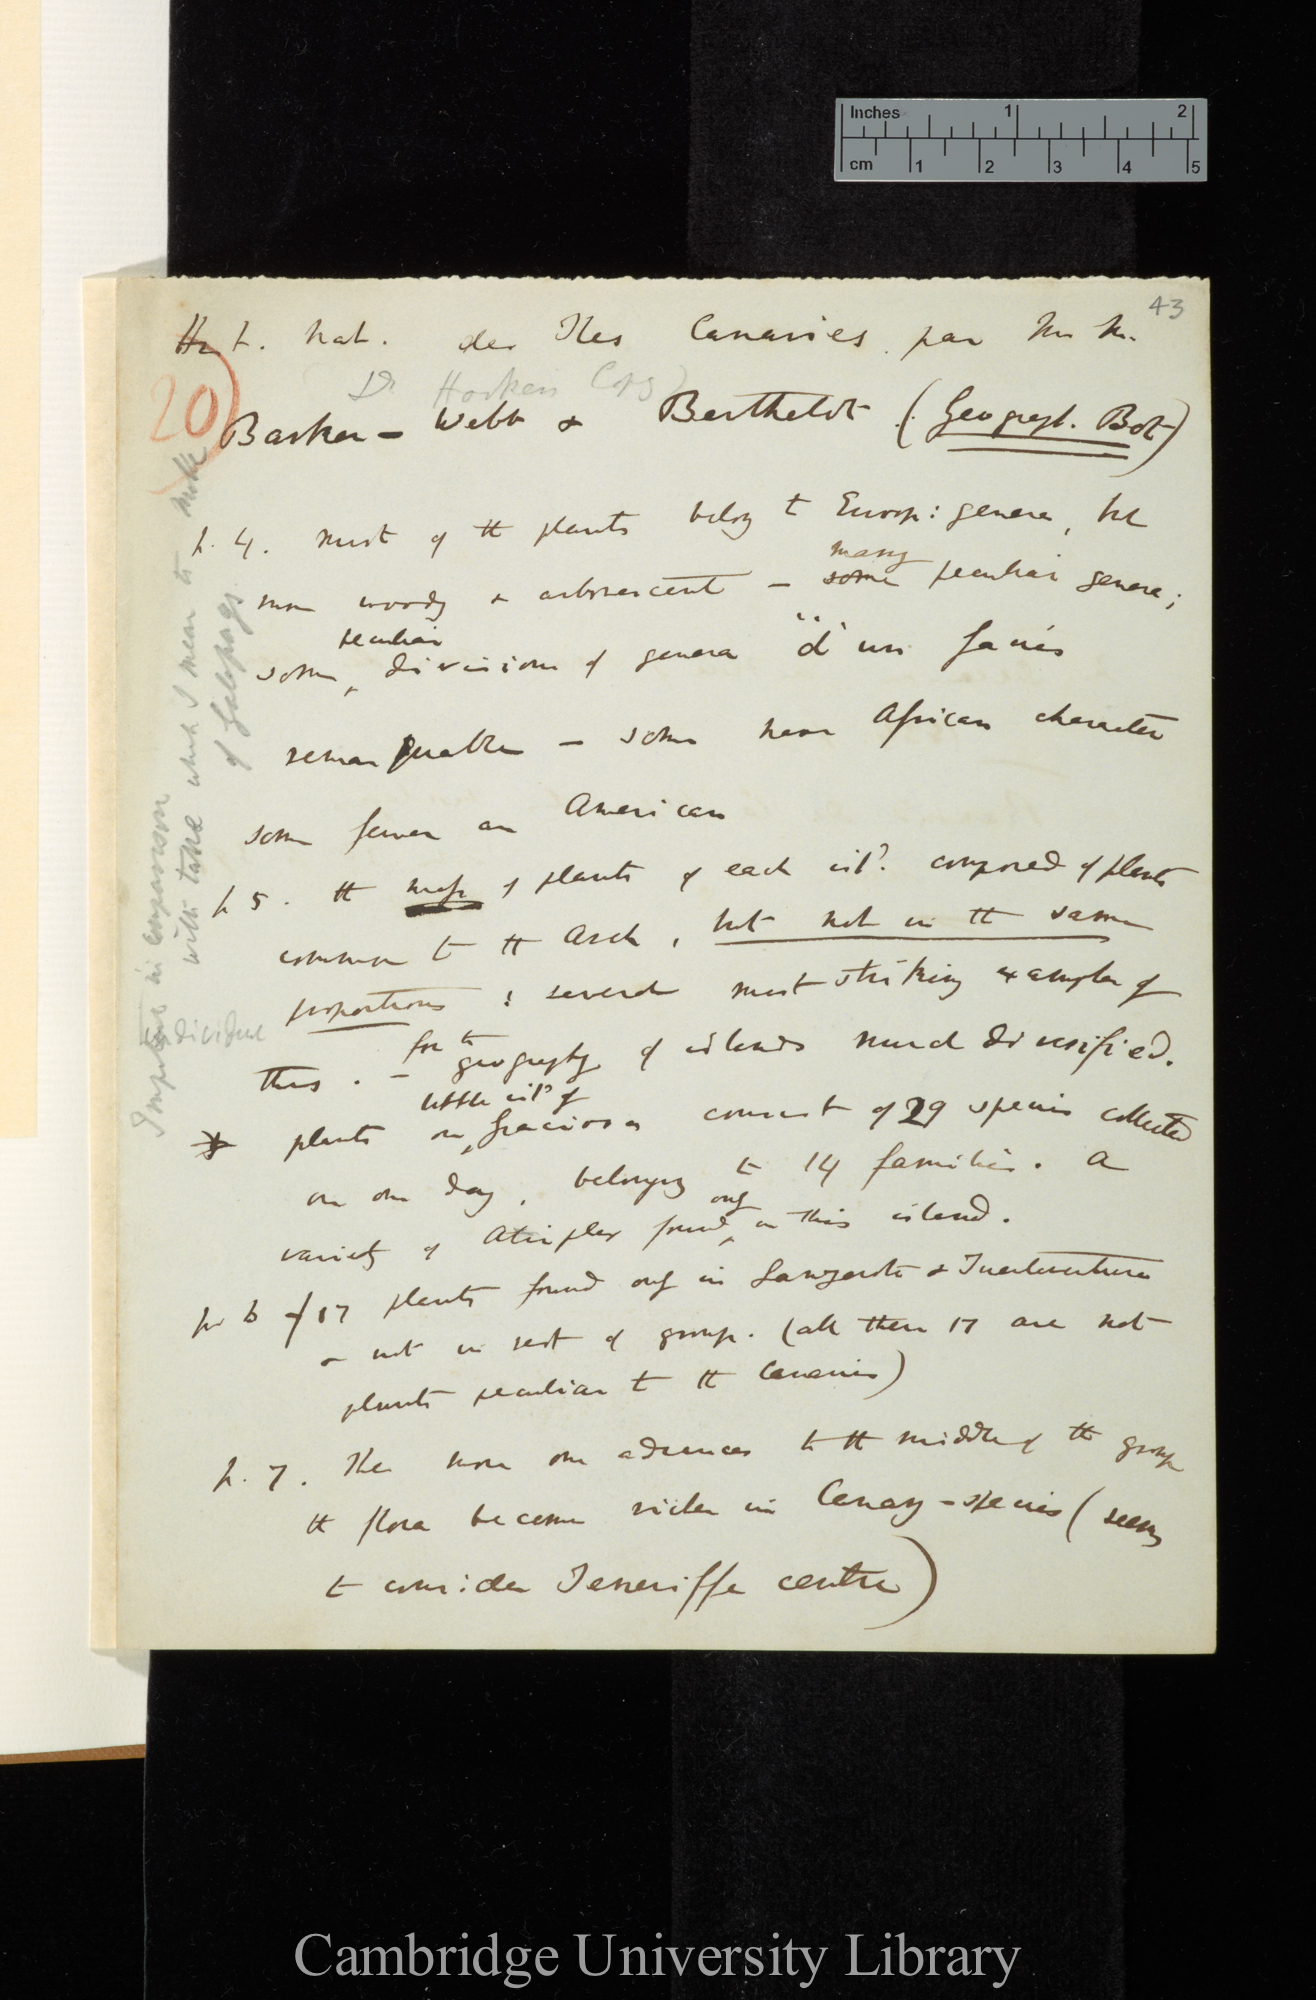 Inches 1 2
cm 1 2 3 4 5
43
Hist. Nat. des Iles Canaries par MM.
(Dr Hookers Copy)
20
Barker-Webb & Berthelot (Geograph. Bot)
p. 4. Most of the plants belong to Europ: genera, but
more woody & arborescent — some many peculiar genera;
some peculiar divisions of genera "d'un facies
remarquable — some have African character
some fewer an American
p 5. the mass of plants of each isld. composed of plants
common to the Arch, but not in the same
proportions: several most striking examples of
this. — for the geography of islands much diversified.
plants on little isld of Graciosa consist of 29 species collected
on one day, belonging to 14 families. A
variety of Atriplex found only in this island.
p 6 17 plants found only in Lanzarote & Fuerteventura
& not in rest of group. (all these 17 are not
plants peculiar to the Canaries)
p. 7. The more one advances to the middle of the group
the flora become richer in Canary-species (seems
to consider Teneriffe centre)
Important in comparison
with table which I mean to make
of Galapagos
divided
Cambridge University Library